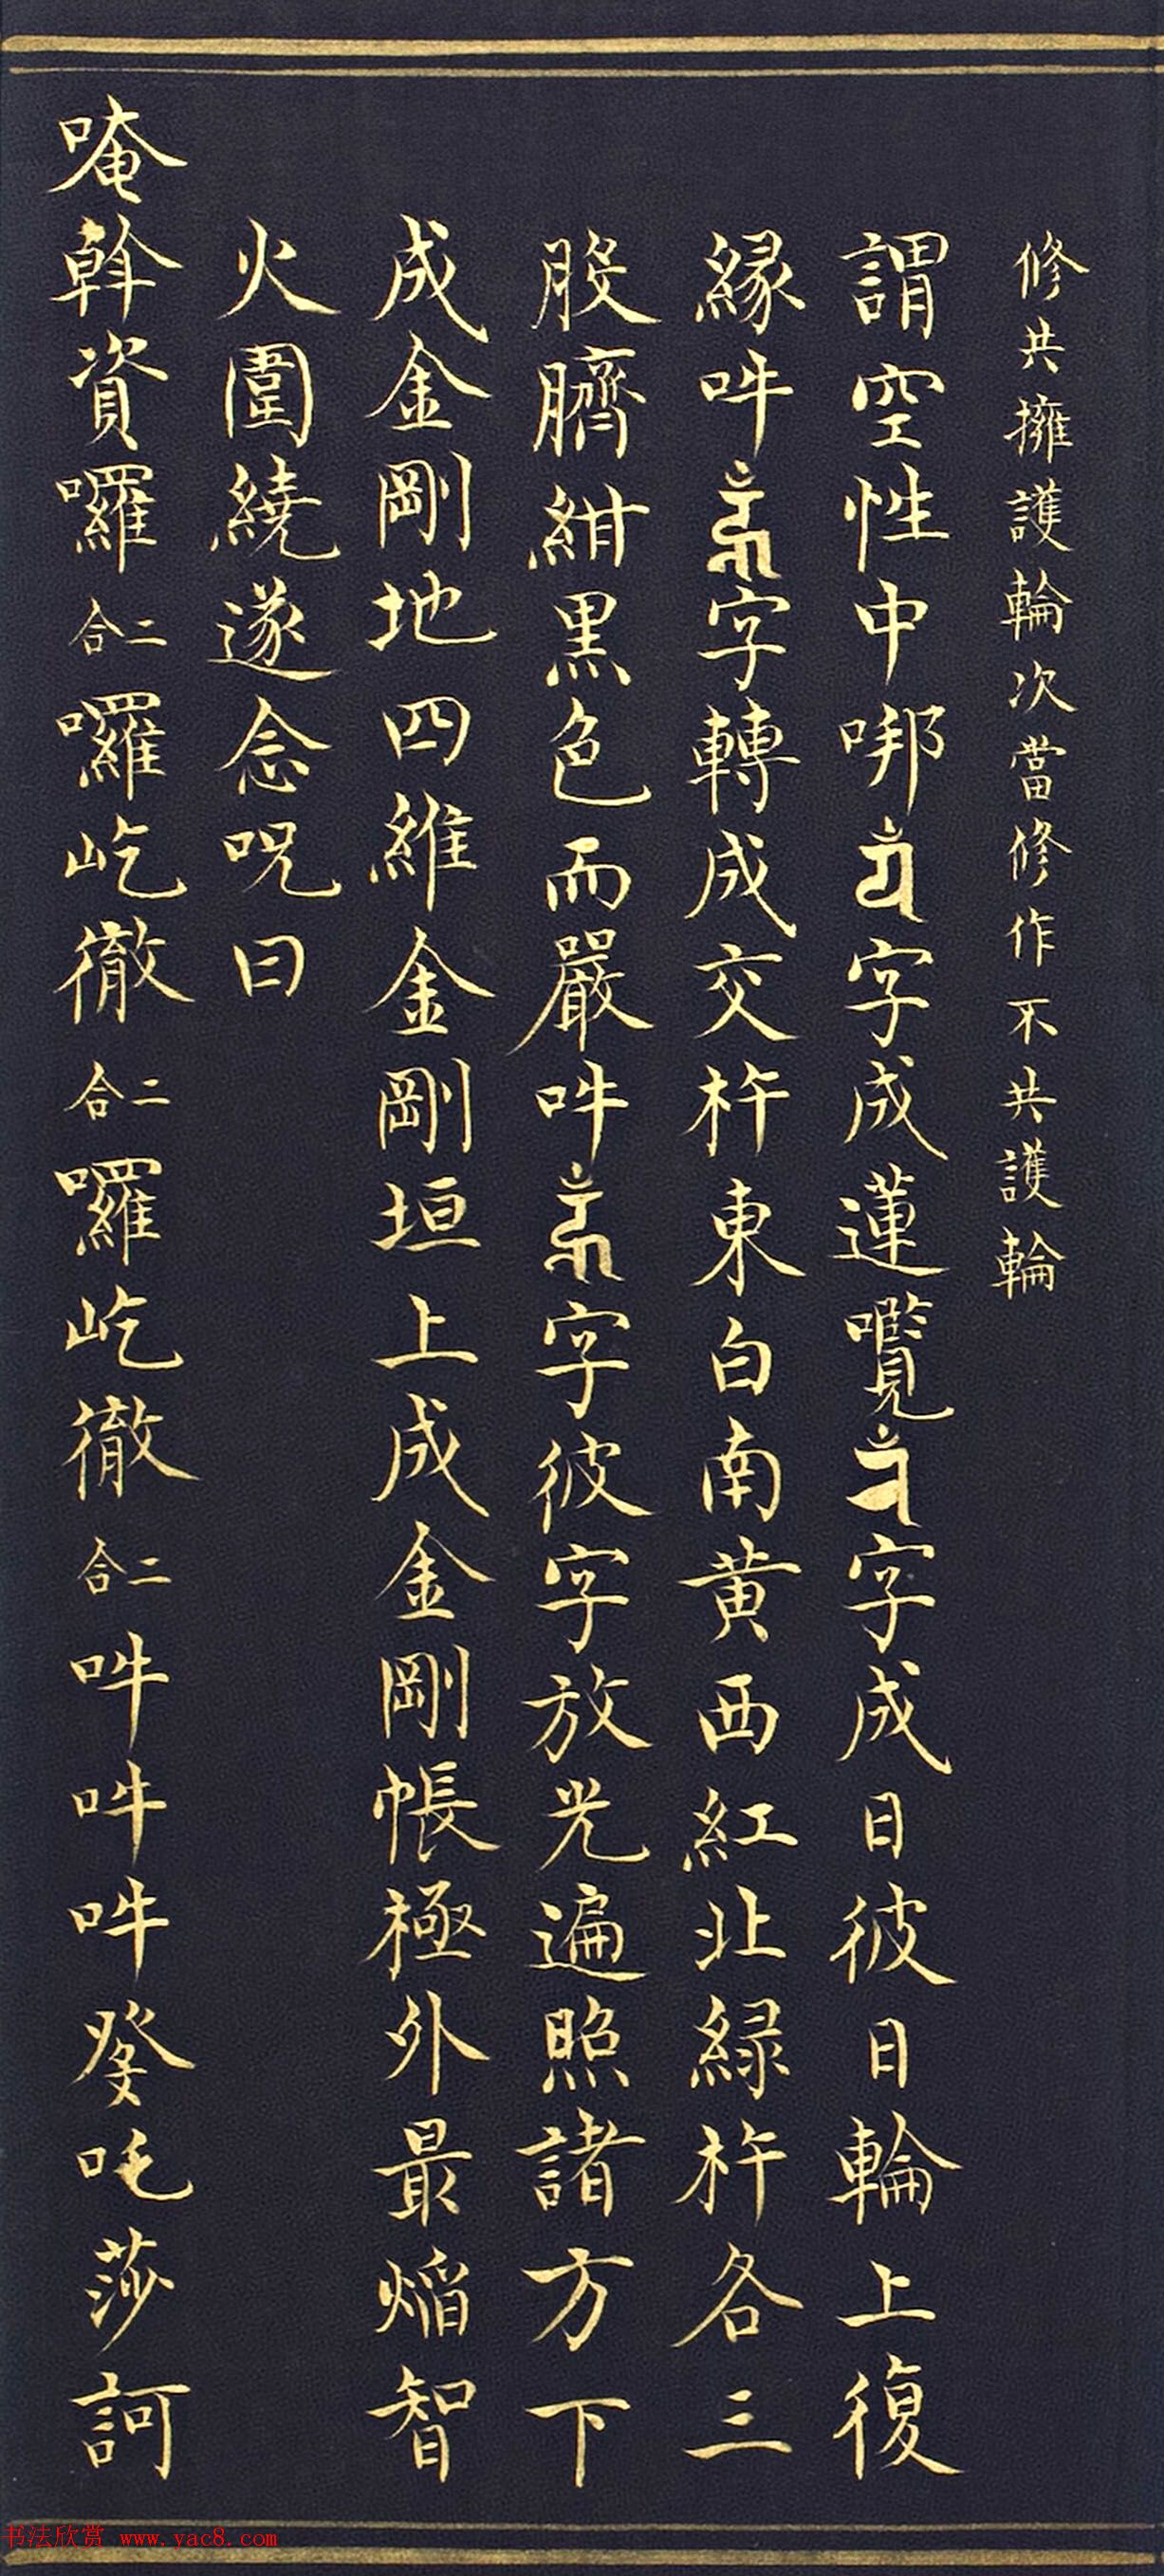 修共擁護輪次當修作不共護輪
謂空性中哪པཾ字成蓮囕རཾ字成日彼日輪上復
緣吽ཧཱུྃ字轉成交杵東白南黃西紅北綠杵各三
股臍紺黑色而嚴吽ཧཱུྃ字彼字放光遍照諸方下
成金剛地四維金剛垣上成金剛帳極外最焰智
火圍繞遂念呪曰
唵斡資囉二合囉屹徹二合囉屹徹二合吽吽吽癹吒莎訶
书法欣赏 www.yac8.com